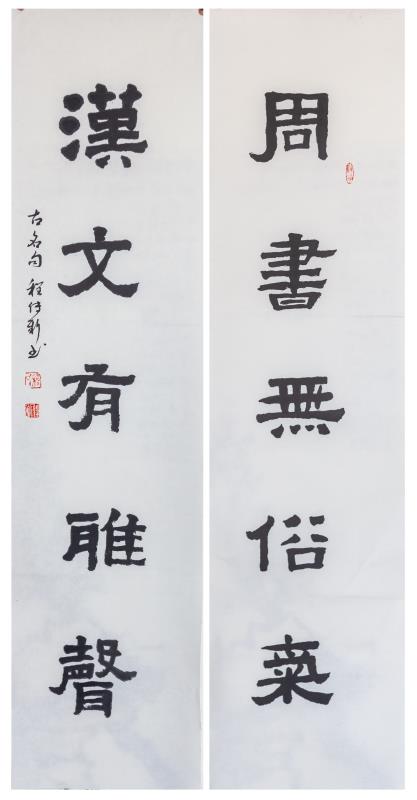 周書無俗氣
漢文有雅聲
古名句 程